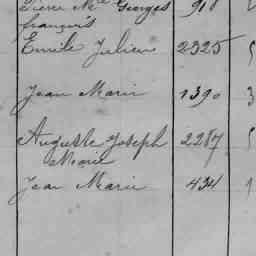 Pierre Mie Georges 918
françois
Emile Julien 2325
Jean Marie 1390 3
Auguste Joseph 2287
Marie
Jean Marie 434 1